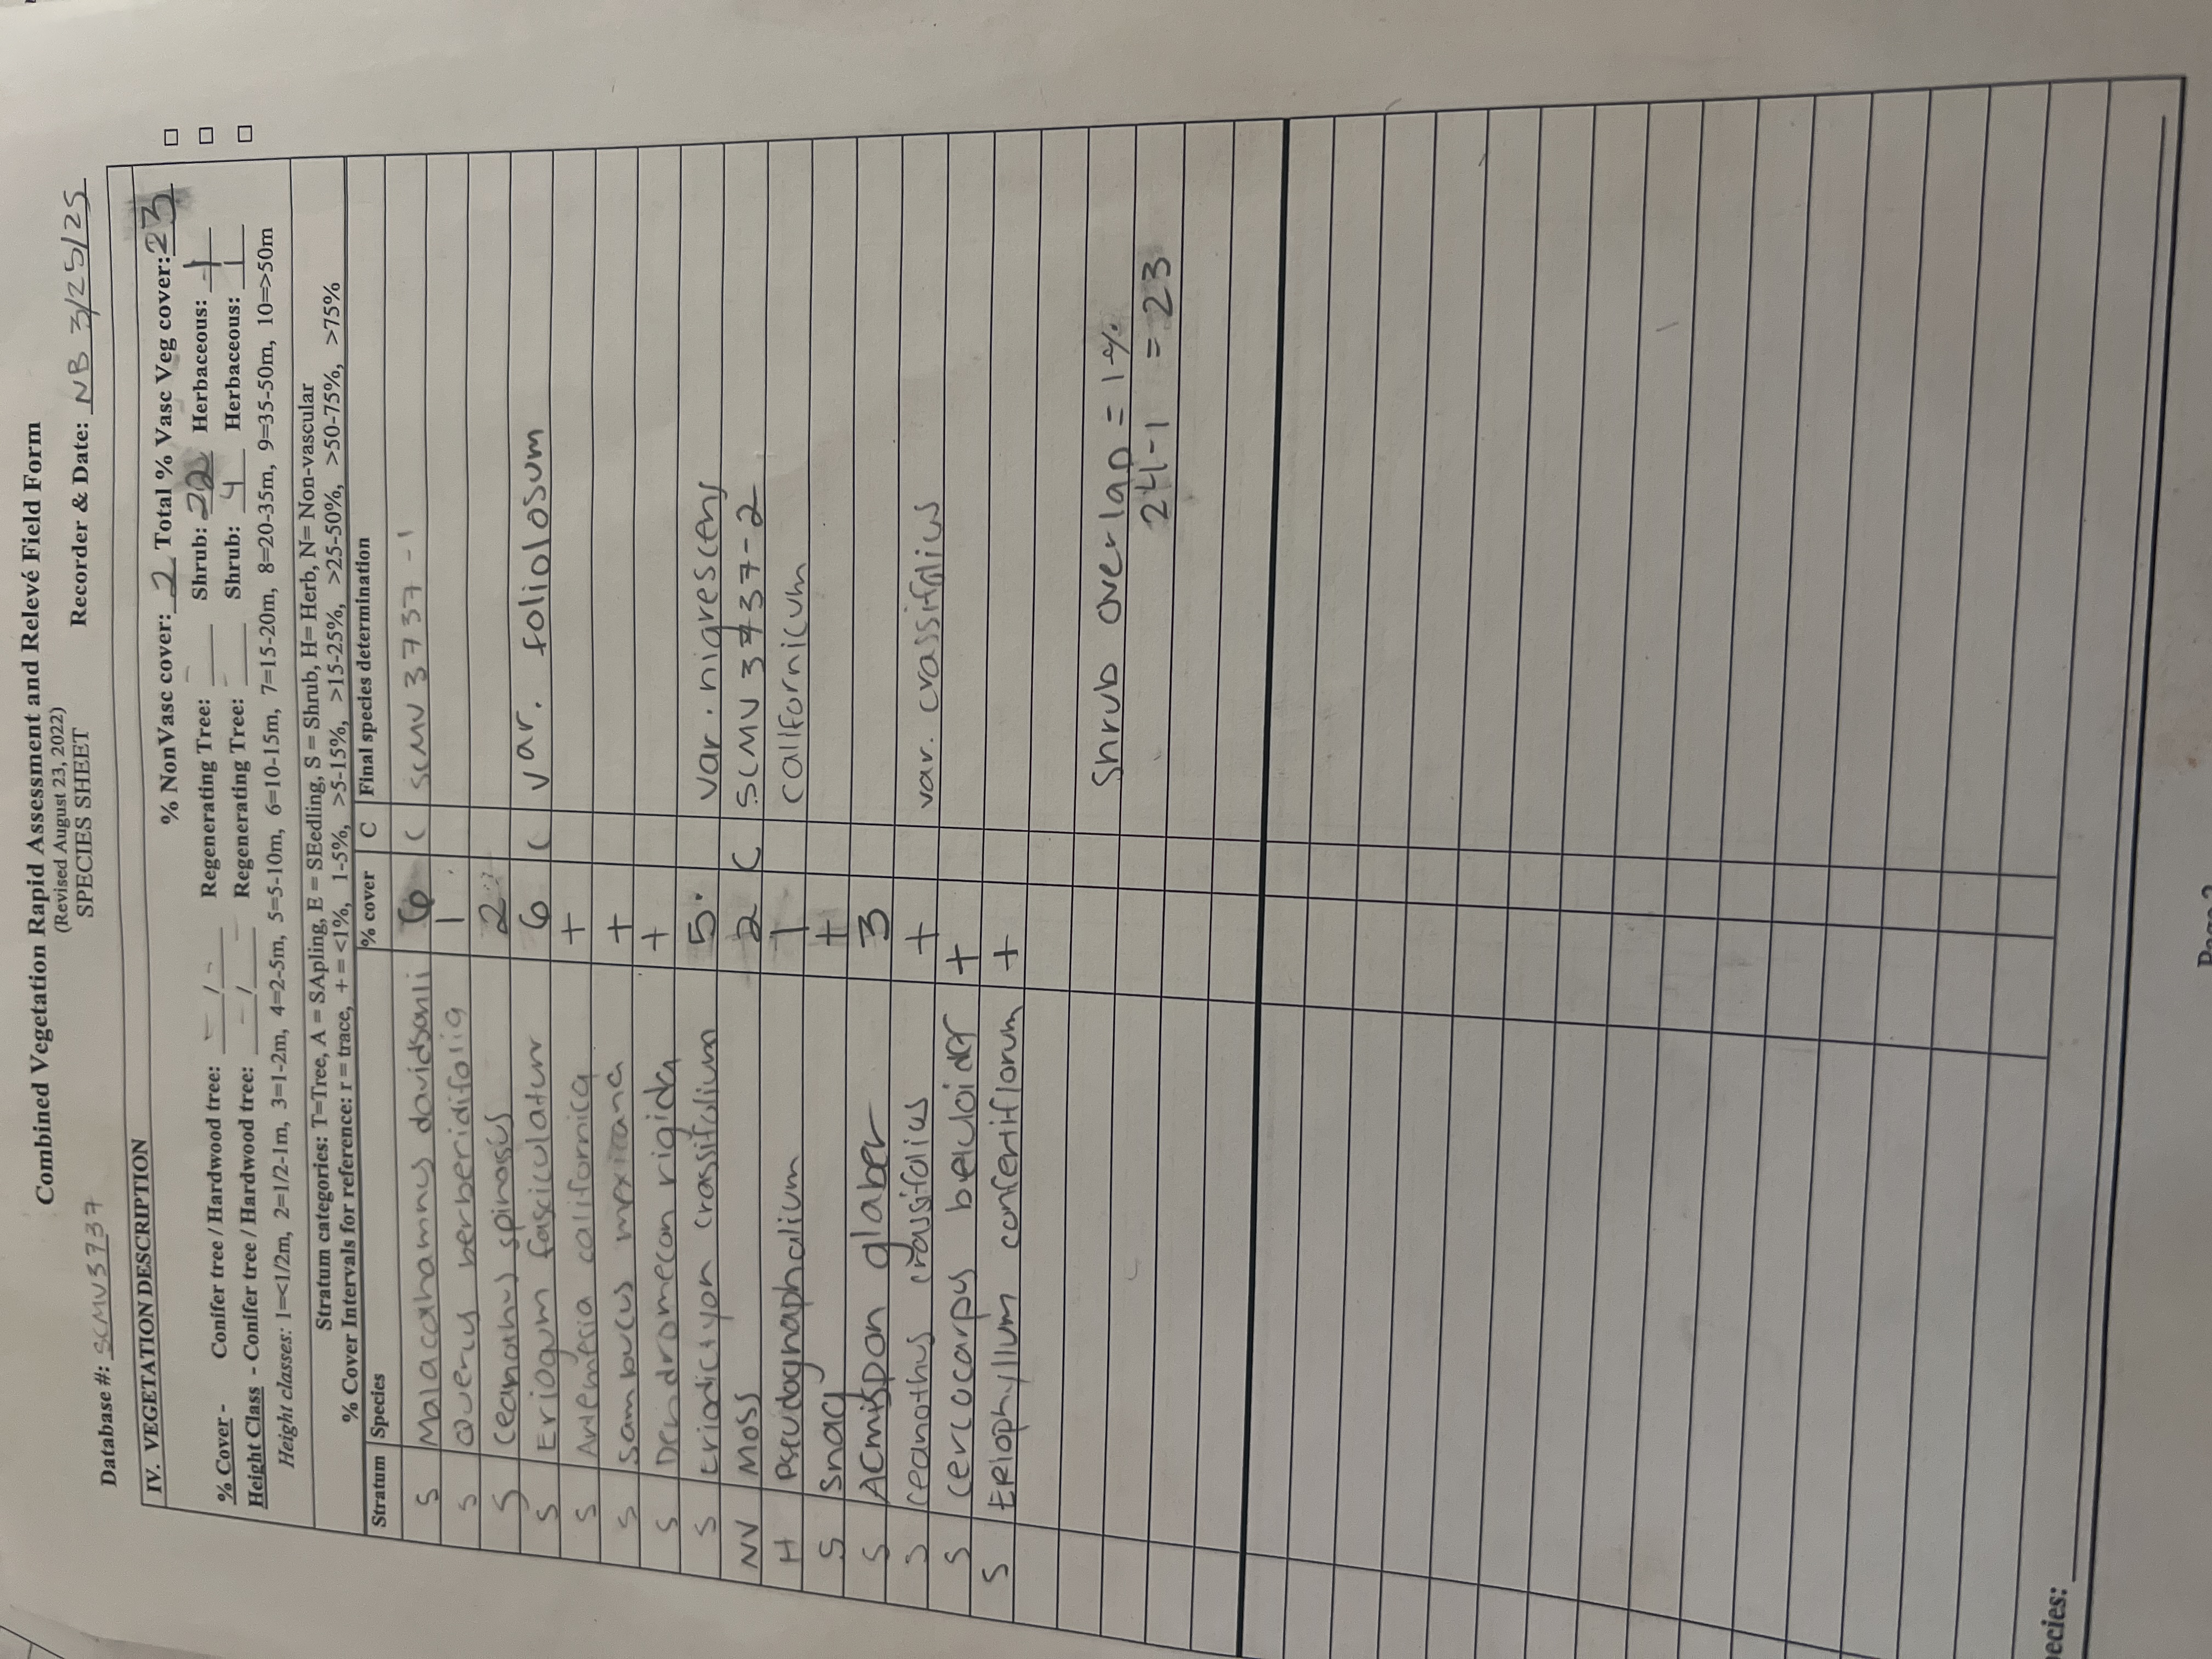 Combined Vegetation Rapid Assessment and Relevé Field Form
(Revised August 23, 2022)
SPECIES SHEET
Database #: SCMV3737 Recorder & Date: NB 3/25/25
IV. VEGETATION DESCRIPTION
% NonVasc cover: 2 Total % Vasc Veg cover: 23
% Cover - Conifer tree / Hardwood tree: - / - Regenerating Tree: - Shrub: 22 Herbaceous: 1
Height Class - Conifer tree / Hardwood tree: - / - Regenerating Tree: - Shrub: 4 Herbaceous: 1
Height classes: 1=<1/2m, 2=1/2-1m, 3=1-2m, 4=2-5m, 5=5-10m, 6=10-15m, 7=15-20m, 8=20-35m, 9=35-50m, 10=>50m
Stratum categories: T=Tree, A = SApling, E = SEedling, S = Shrub, H= Herb, N= Non-vascular
% Cover Intervals for reference: r = trace, + = <1%, 1-5%, >5-15%, >15-25%, >25-50%, >50-75%, >75%
Stratum Species % cover C Final species determination
S Malacothamnus davidsonii 6 C SCMV3737-1
S Quercus berberidifolia 1
S Ceanothus spinosus 2
S Eriogum fasciculatum 6 C var. foliolosum
S Artemesia californica +
S Sambucus mexicana +
S Dendromecon rigida +
S Eriodictyon crassifolium 5 var. nigrescens
NV Moss 2 C SCMV3737-2
H Pseudognaphalium 1 californicum
S Snag +
S Acmispon glaber 3
S Ceanothus crassifolius + var. crassifolius
S Cercocarpus betuloides +
S Eriophyllum confertiflorum +
Shrub Overlap = 1%
24-1 = 23
ecies:
Page 2